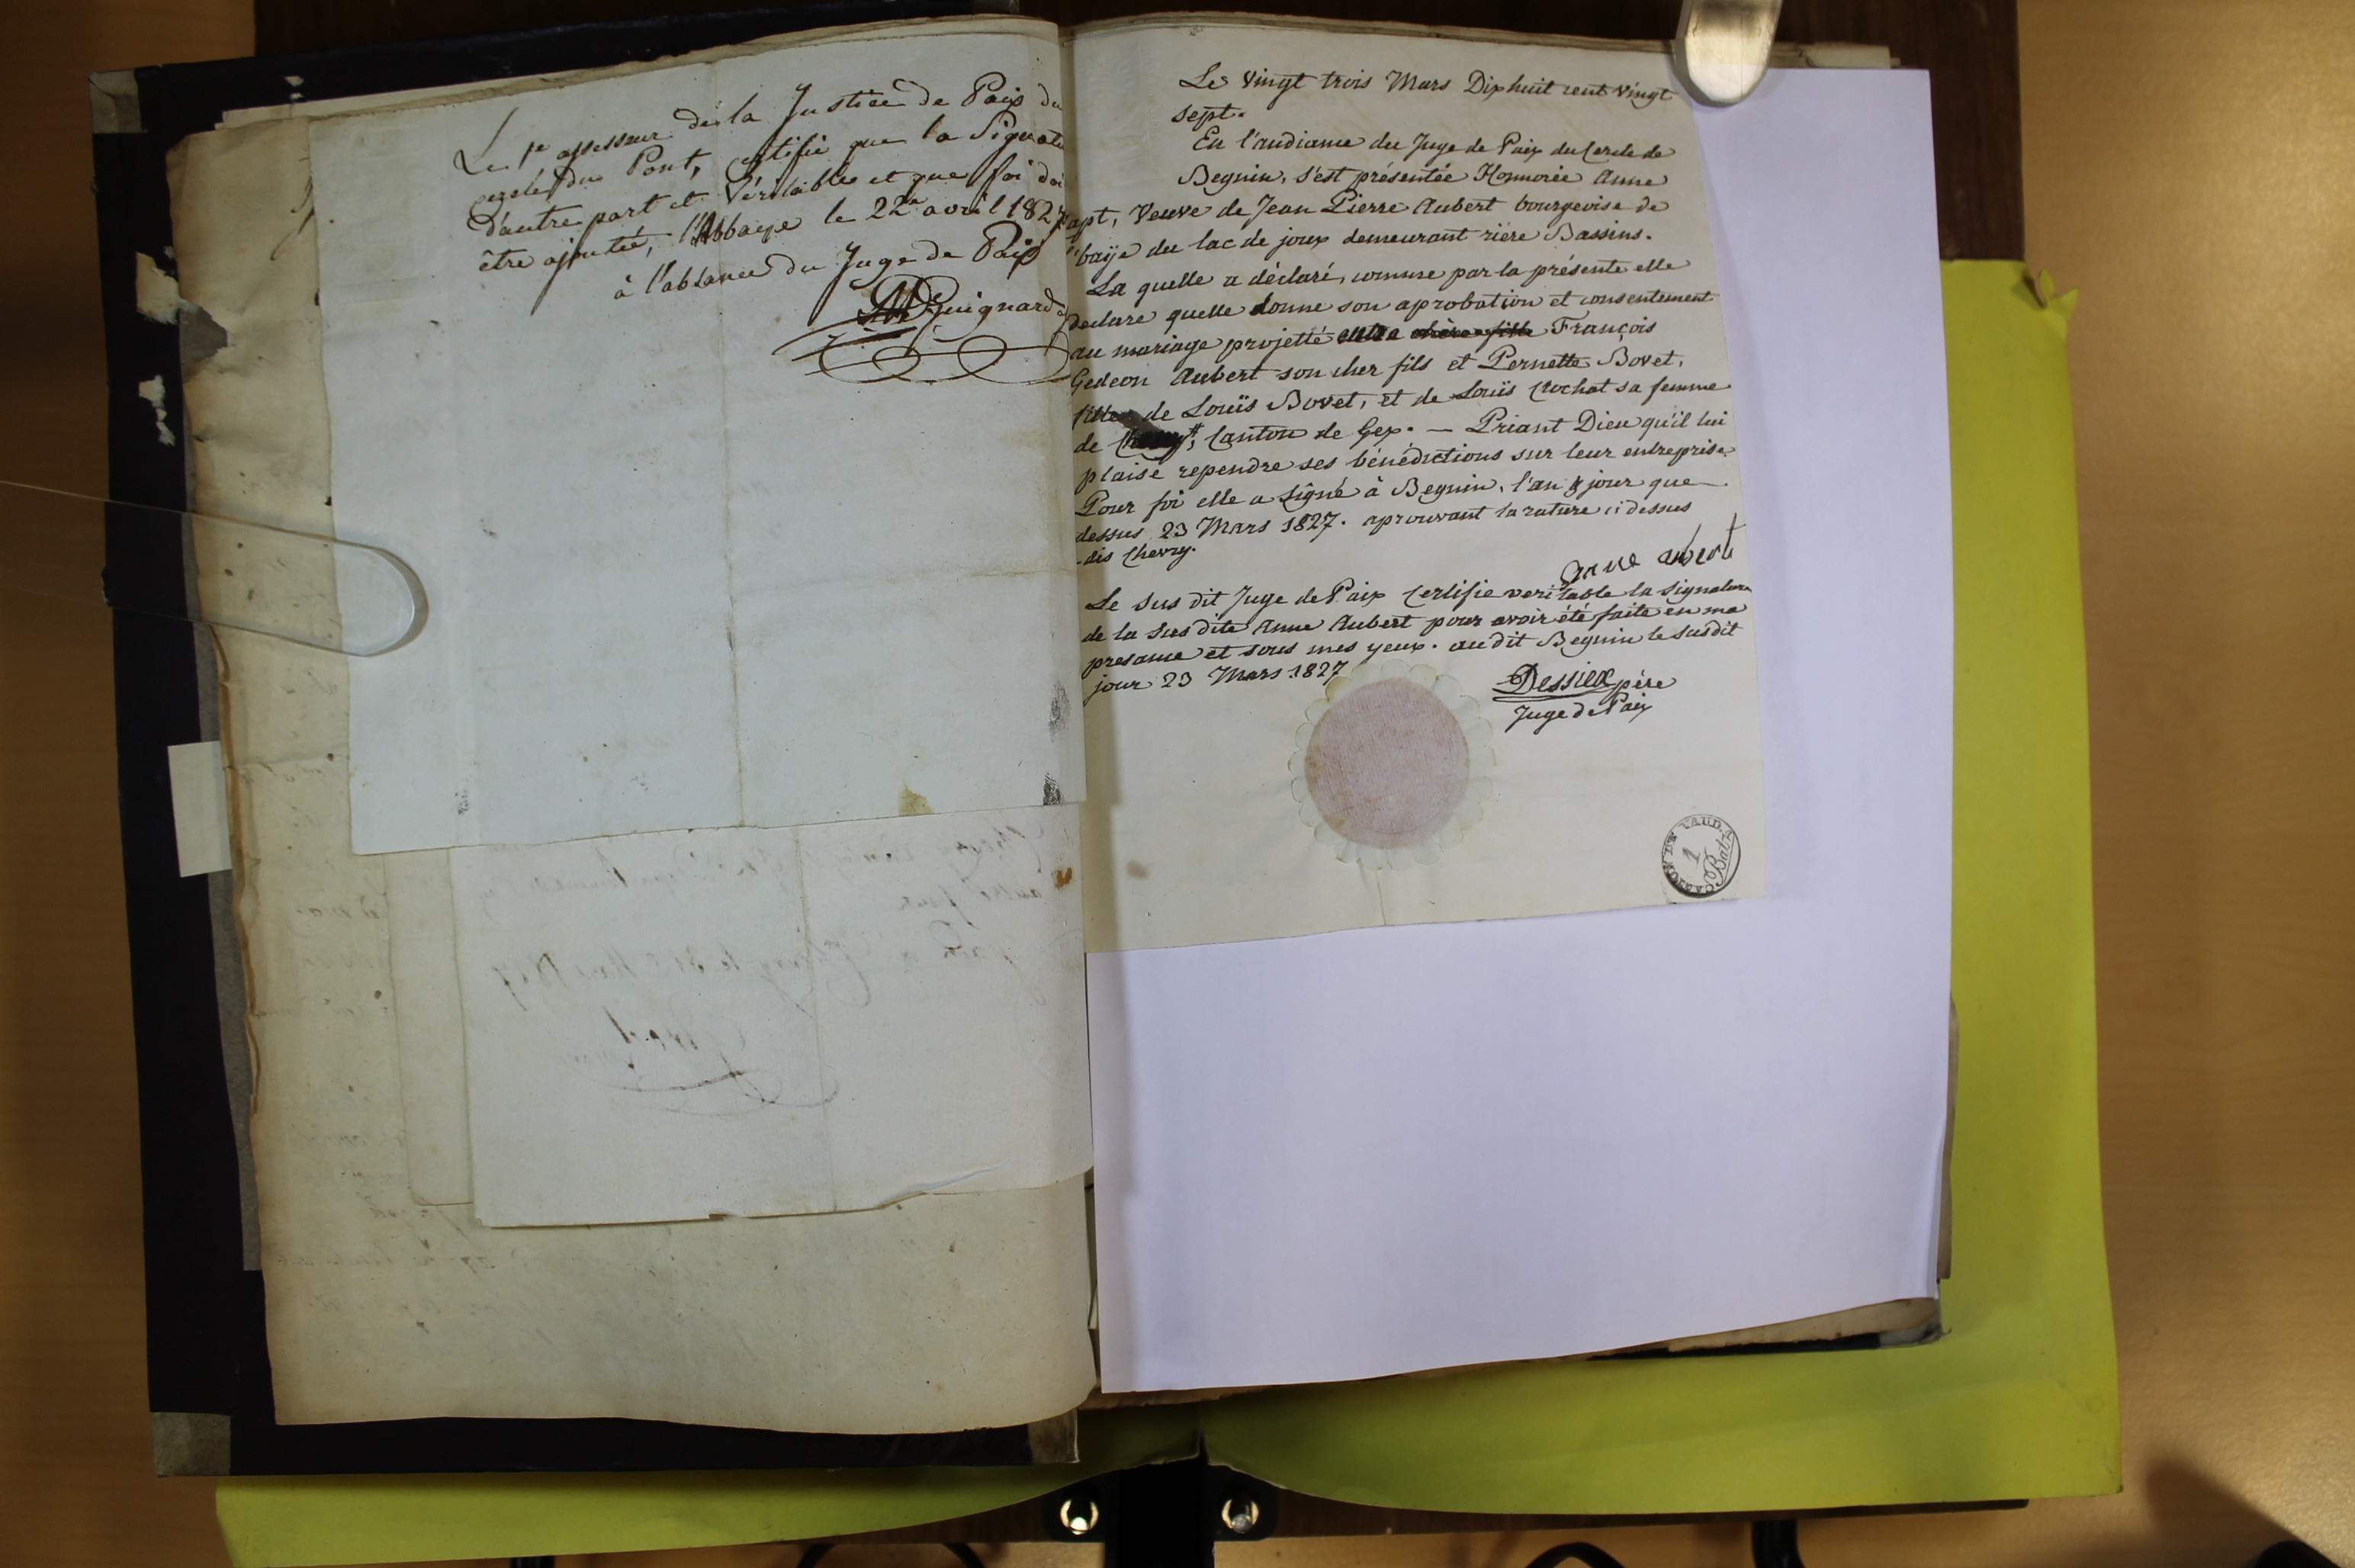 Le 1e assesseur de la Justice de Paix du
cercle du Pont, certifie que la Signatu
d'autre part et Véritable et que foi doi
être ajoutée, l'Abbaye le 22e avril 1827
à l'absance du Juge de Paix
Guignard
Le Vingt trois Mars Dixhuit cent Vingt
sept.
En l'audiance du Juge de Paix du Cercle de
Begnin, s'est présentée Honnorée Anne
apt, Veuve de Jean Pierre Aubert bourgeoise de
baÿe du lac de joux demeurant rière Bassins.
La quelle a déclaré, comme par la présente elle
declare quelle donne son aprobation et consentement
au mariage projetté François
Gedeon Aubert son cher fils et Pernette Bovet,
fille de Louïs Bovet, et de Louïs Rochat sa femme
de Canton de Gex. — Priant Dieu qu'il lui
plaise rependre ses bénédictions sur leur entreprise
Pour foi elle a signé à Begnin, l'an & jour que
dessus 23 Mars 1827. aprouvant la rature ci dessus
dis Chevry.
anne aubert
Le sus dit Juge de Paix Certifie veritable la signature
de la sus dite Anne Aubert pour avoir été faite en ma
presance et sous mes yeux. au dit Begnin le susdit
jour 23 Mars 1827
Dessiex père
Juge de Paix
CANTON DE VAUD.
1
Batz